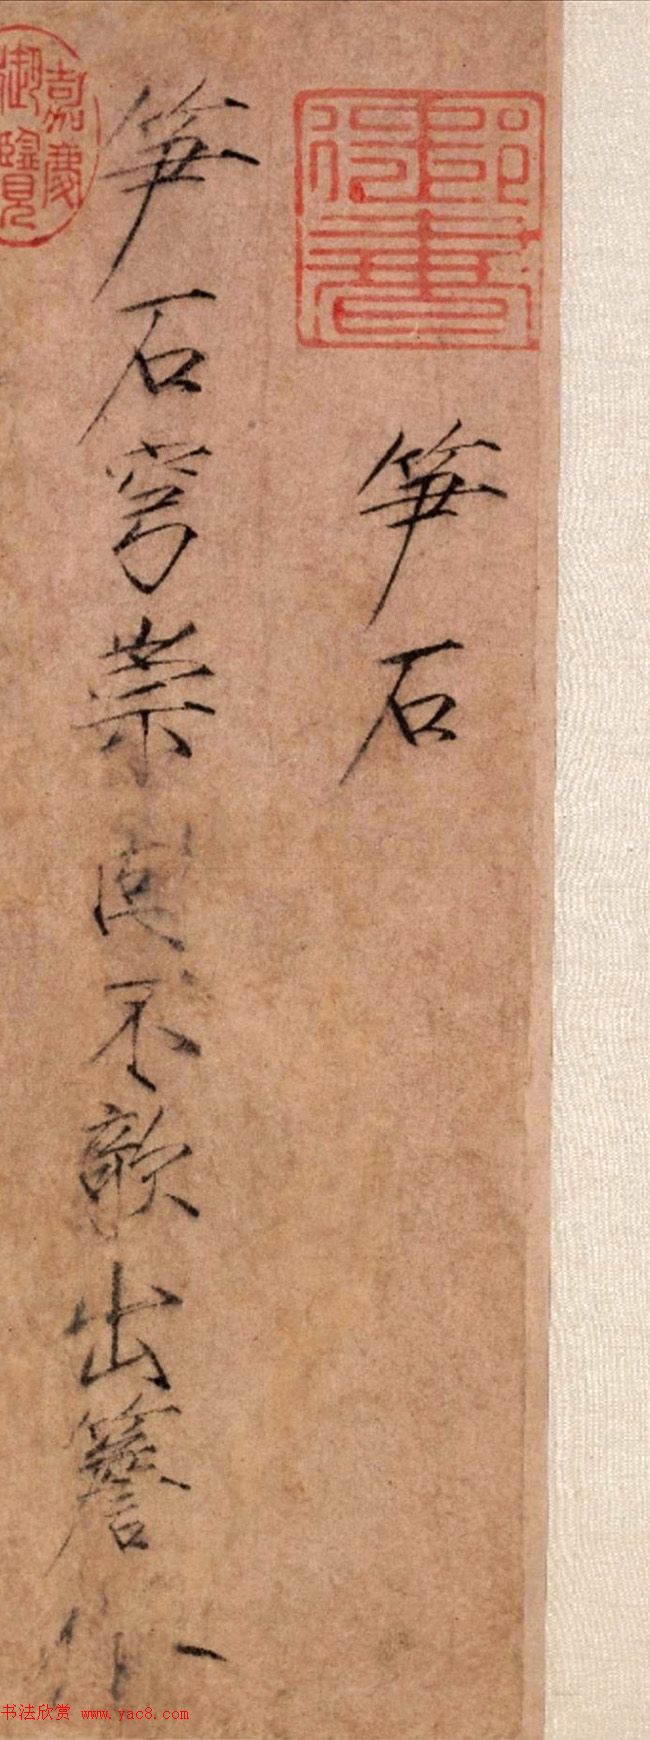 筍石
筍石穹崇直不欹出簷
嘉慶
御覽
御書
书法欣赏 www.yac8.com